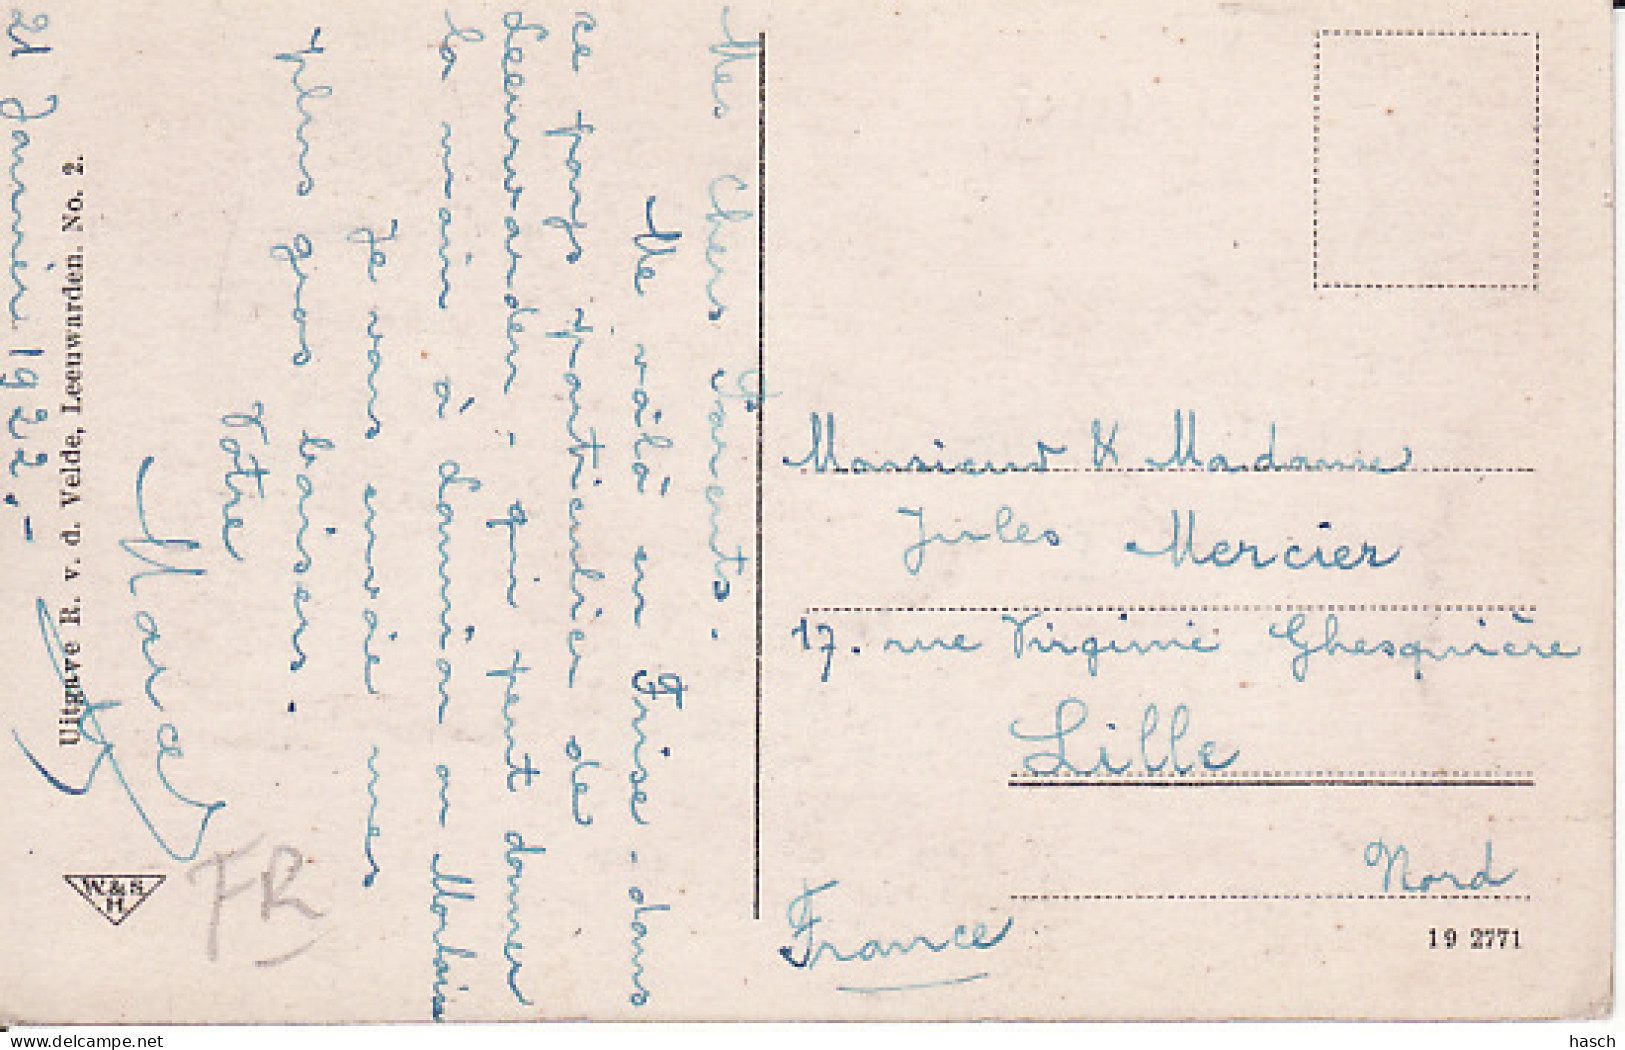 Mes Chers Parents.
Me voilà en Frise. dans
ce pays particulier de
Leeuwarden - qui peut donner
la main à Jannion ou Morlaix
Je vous envoie mes
plus gros baisers.
Votre
Marcel
21 Janvier 1922.-
Uitgave R. v. d. Velde, Leeuwarden. No. 2.
W. & S.
H
FR
Monsieur & Madame
Jules Mercier
17. rue Virginie Ghesquière
Lille
Nord
France
19 2771
Delcampe.net
hasch